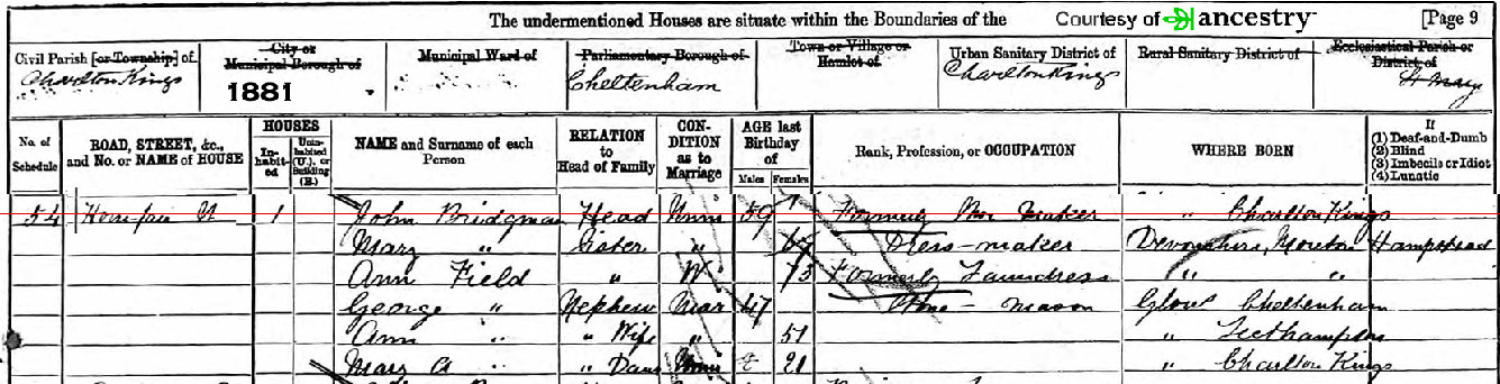 The undermentioned Houses are situate within the Boundaries of the Courtesy of ancestry [Page 9
Civil Parish [or Township] of City or Municipal Borough of Municipal Ward of Parliamentary Borough of Town or Village or Hamlet of Urban Sanitary District of Rural Sanitary District of Ecclesiastical Parish or District of
Charlton Kings 1881 Cheltenham Charlton Kings St Mary
No. of Schedule ROAD, STREET, &c., and No. or NAME of HOUSE HOUSES Inhabited Uninhabited (U.), or Building (B.) NAME and Surname of each Person RELATION to Head of Family CONDITION as to Marriage AGE last Birthday of Males Females Rank, Profession, or OCCUPATION WHERE BORN If (1) Deaf-and-Dumb (2) Blind (3) Imbecile or Idiot (4) Lunatic
54 Horse-fair St 1 John Bridgman Head Unm 59 Formerly Shoe Maker " Charlton Kings
Mary " Sister " Dress-maker Devonshire, Moreton Hampstead
Ann Field " W 73 Formerly Laundress " "
George " Nephew Mar 47 Stone-mason Glos Cheltenham
Ann " " Wife " 51 " Leckhampton
Mary A " " Daur Unm 21 " Charlton Kings